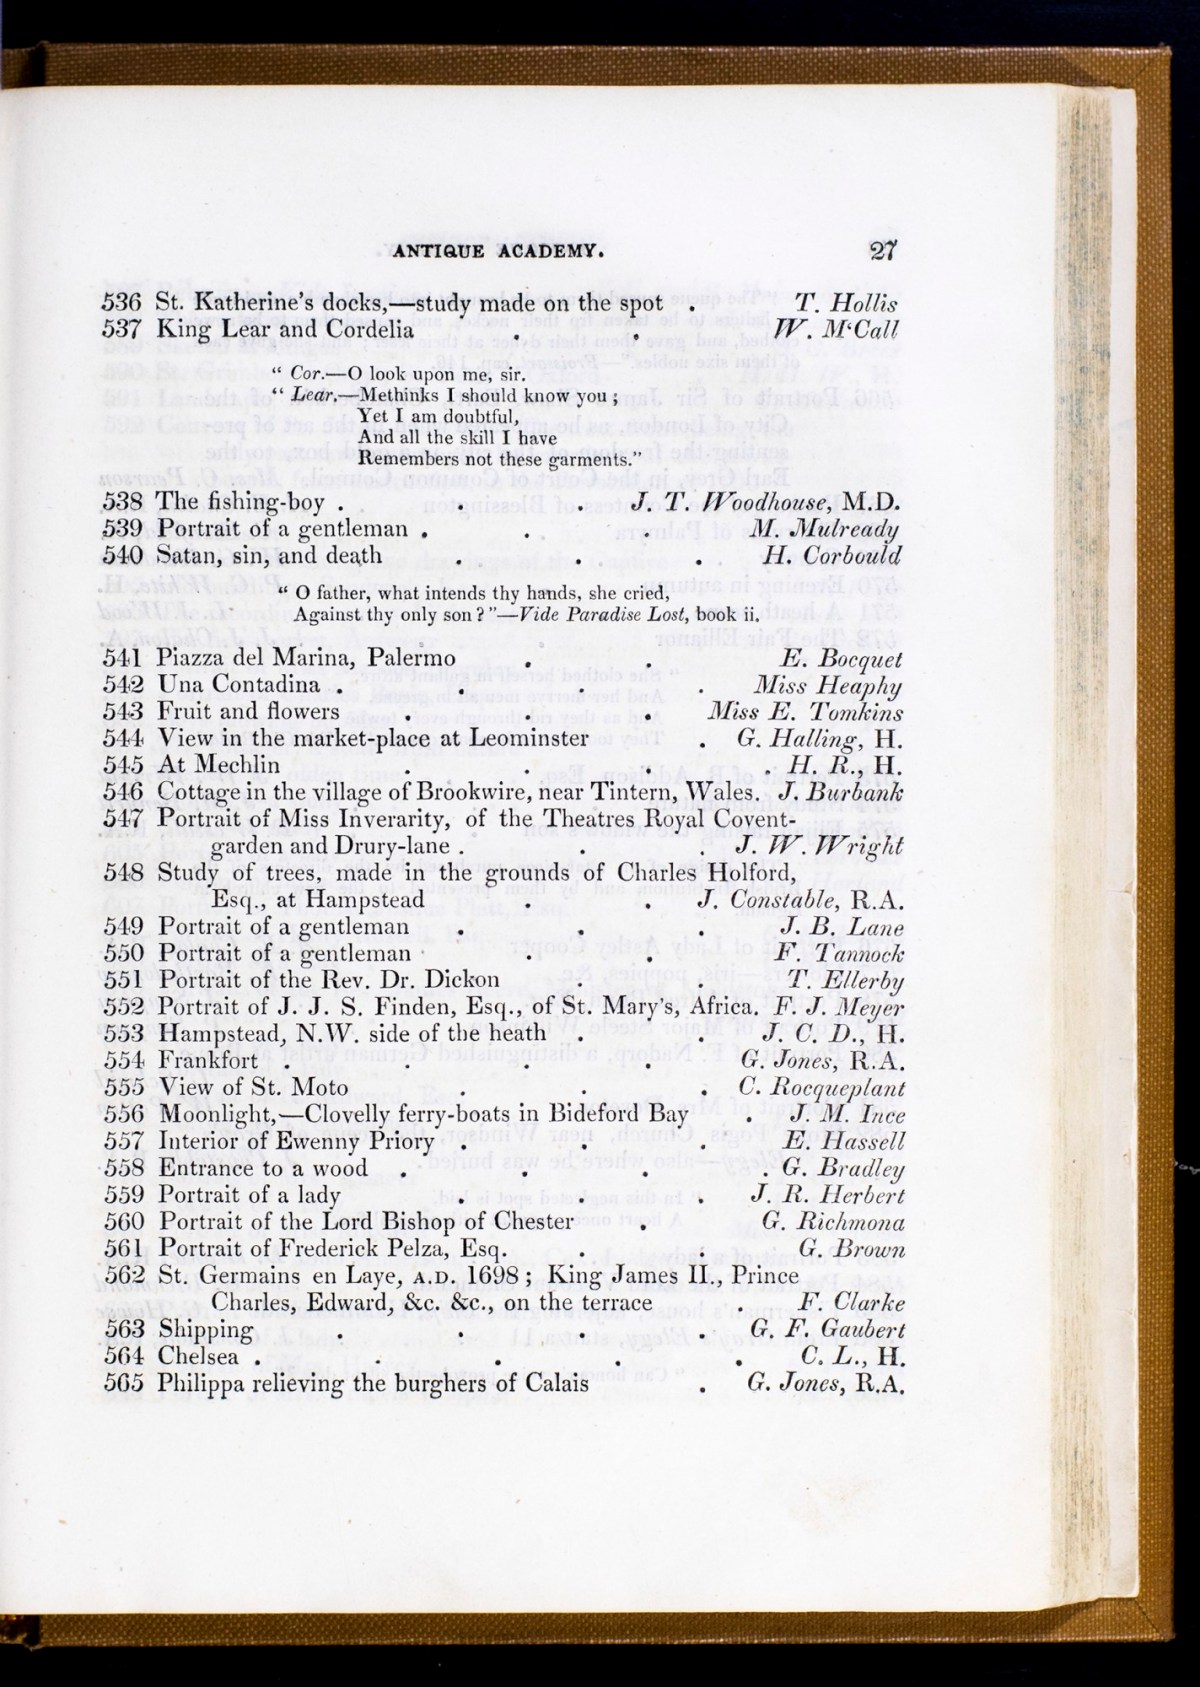 ANTIQUE ACADEMY. 27
536 St. Katherine's docks,—study made on the spot . T. Hollis
537 King Lear and Cordelia . . W. M‘Call
“ Cor.—O look upon me, sir.
“ Lear.—Methinks I should know you ;
Yet I am doubtful,
And all the skill I have
Remembers not these garments.”
538 The fishing-boy . . . J. T. Woodhouse, M.D.
539 Portrait of a gentleman . . . M. Mulready
540 Satan, sin, and death . . . H. Corbould
“ O father, what intends thy hands, she cried,
Against thy only son ? ”—Vide Paradise Lost, book ii.
541 Piazza del Marina, Palermo . . E. Bocquet
542 Una Contadina . . . . Miss Heaphy
543 Fruit and flowers . . . Miss E. Tomkins
544 View in the market-place at Leominster . G. Halling, H.
545 At Mechlin . . . . H. R., H.
546 Cottage in the village of Brookwire, near Tintern, Wales. J. Burbank
547 Portrait of Miss Inverarity, of the Theatres Royal Covent-
garden and Drury-lane . . . J. W. Wright
548 Study of trees, made in the grounds of Charles Holford,
Esq., at Hampstead . . J. Constable, R.A.
549 Portrait of a gentleman . . . J. B. Lane
550 Portrait of a gentleman . . F. Tannock
551 Portrait of the Rev. Dr. Dickon . . T. Ellerby
552 Portrait of J. J. S. Finden, Esq., of St. Mary's, Africa. F. J. Meyer
553 Hampstead, N.W. side of the heath . . J. C. D., H.
554 Frankfort . . . . G. Jones, R.A.
555 View of St. Moto . . . C. Rocqueplant
556 Moonlight,—Clovelly ferry-boats in Bideford Bay . J. M. Ince
557 Interior of Ewenny Priory . . . E. Hassell
558 Entrance to a wood . . . . G. Bradley
559 Portrait of a lady . . . J. R. Herbert
560 Portrait of the Lord Bishop of Chester . G. Richmona
561 Portrait of Frederick Pelza, Esq. . . G. Brown
562 St. Germains en Laye, A.D. 1698 ; King James II., Prince
Charles, Edward, &c. &c., on the terrace . F. Clarke
563 Shipping . . . . G. F. Gaubert
564 Chelsea . . . . . C. L., H.
565 Philippa relieving the burghers of Calais . G. Jones, R.A.